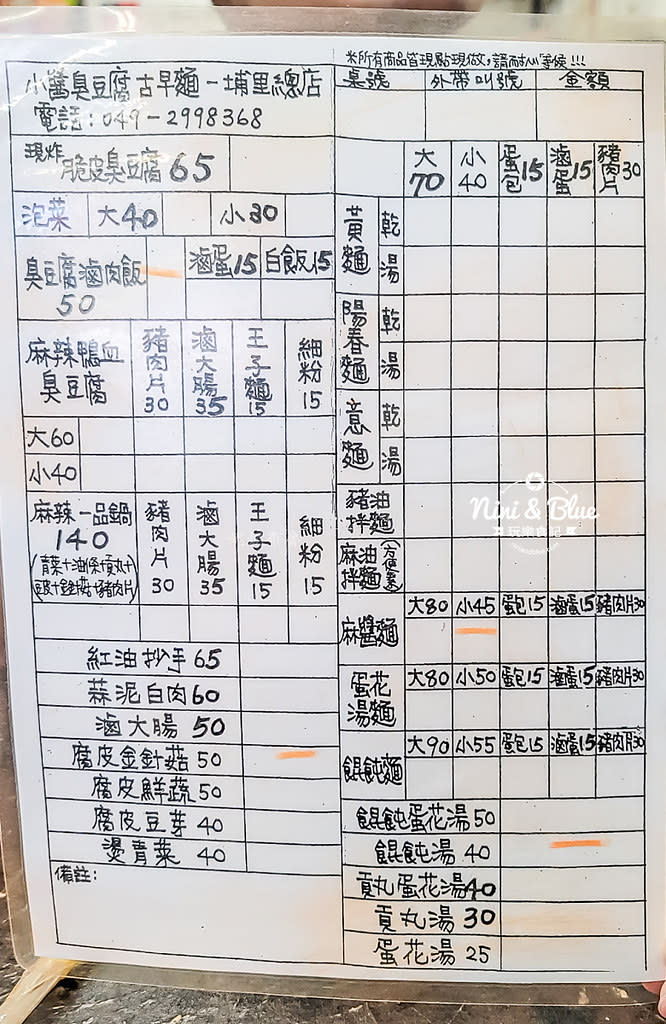 ※所有商品皆現點現做，請耐心等候!!!
小醬臭豆腐古早麵-埔里總店
電話：049-2998368
現炸脆皮臭豆腐 65
泡菜 大40 小30
臭豆腐滷肉飯 50 滷蛋15 白飯15
麻辣鴨血臭豆腐 豬肉片30 滷大腸35 王子麵15 細粉15
大60
小40
麻辣一品鍋 140 豬肉片30 滷大腸35 王子麵15 細粉15
(青菜+油條+貢丸+
豆皮+金針菇+豬肉片)
紅油抄手 65
蒜泥白肉 60
滷大腸 50
腐皮金針菇 50
腐皮鮮蔬 50
腐皮豆芽 40
燙青菜 40
備註：
桌號 外帶叫號 金額
大70 小40 蛋包15 滷蛋15 豬肉片30
黃麵 乾
湯
陽春麵 乾
湯
意麵 乾
湯
豬油拌麵
麻油拌麵
麻醬麵 大80 小45 蛋包15 滷蛋15 豬肉片30
蛋花湯麵 大80 小50 蛋包15 滷蛋15 豬肉片30
餛飩麵 大90 小55 蛋包15 滷蛋15 豬肉片30
餛飩蛋花湯 50
餛飩湯 40
貢丸蛋花湯 40
貢丸湯 30
蛋花湯 25
Nini & Blue
玩樂食記